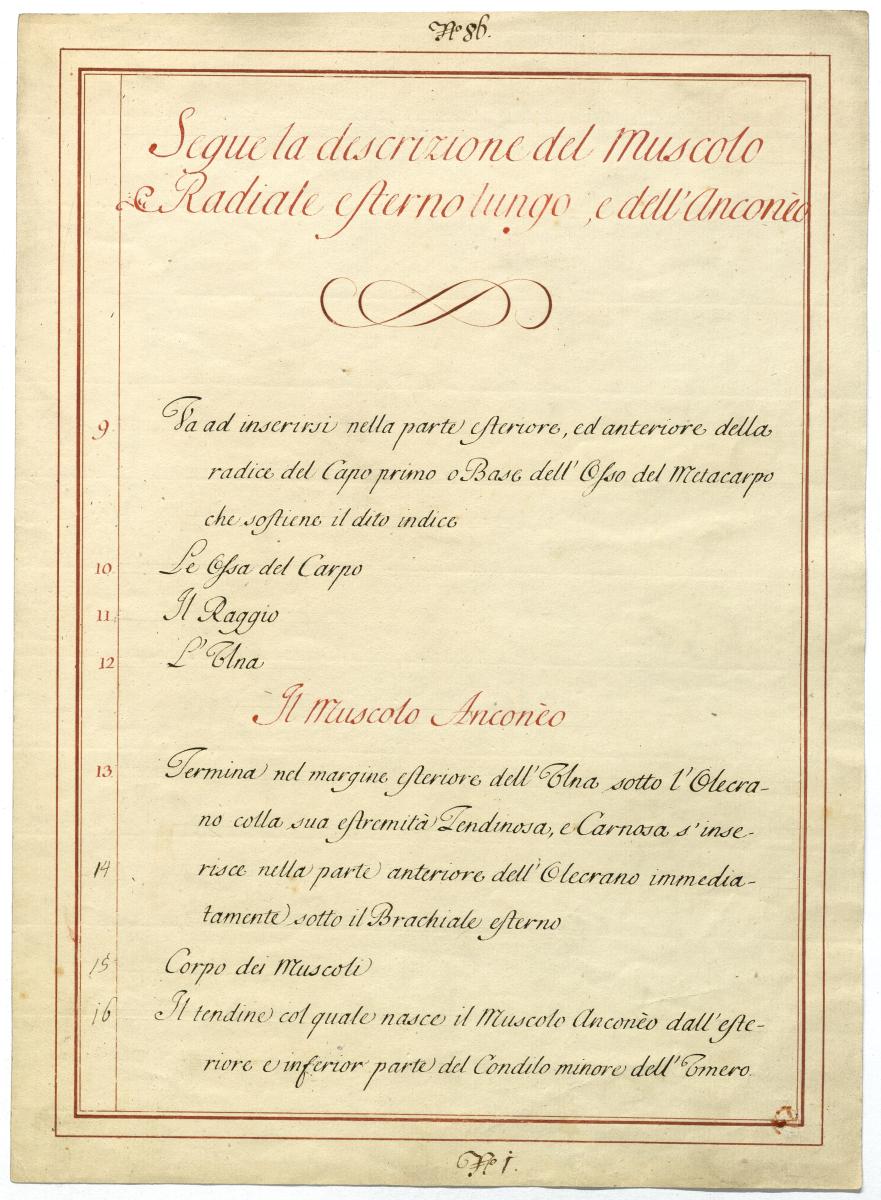 No 86.
Segue la descrizione del Muscolo
Radiale esterno lungo, e dell'Anconèo
9 Va ad inserirsi nella parte esteriore, ed anteriore della
radice del Capo primo o Base dell'Osso del Metacarpo
che sostiene il dito indice
10 Le Ossa del Carpo
11 Il Raggio
12 L'Ulna
Il Muscolo Anconèo
13 Termina nel margine esteriore dell'Ulna sotto l'Olecra-
no colla sua estremità Tendinosa, e Carnosa s'inse-
14 risce nella parte anteriore dell'Olecrano immedia-
tamente sotto il Brachiale esterno
15 Corpo dei Muscoli
16 Il tendine col quale nasce il Muscolo Anconèo dall'este-
riore e inferior parte del Condilo minore dell'Umero.
No 1.